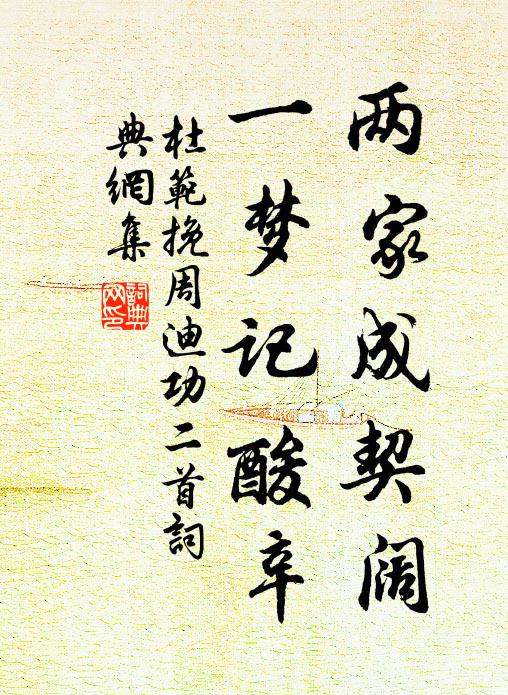 两家成契阔
一梦记酸辛
杜範挽周迪功二首詞
典網集
詞典网印